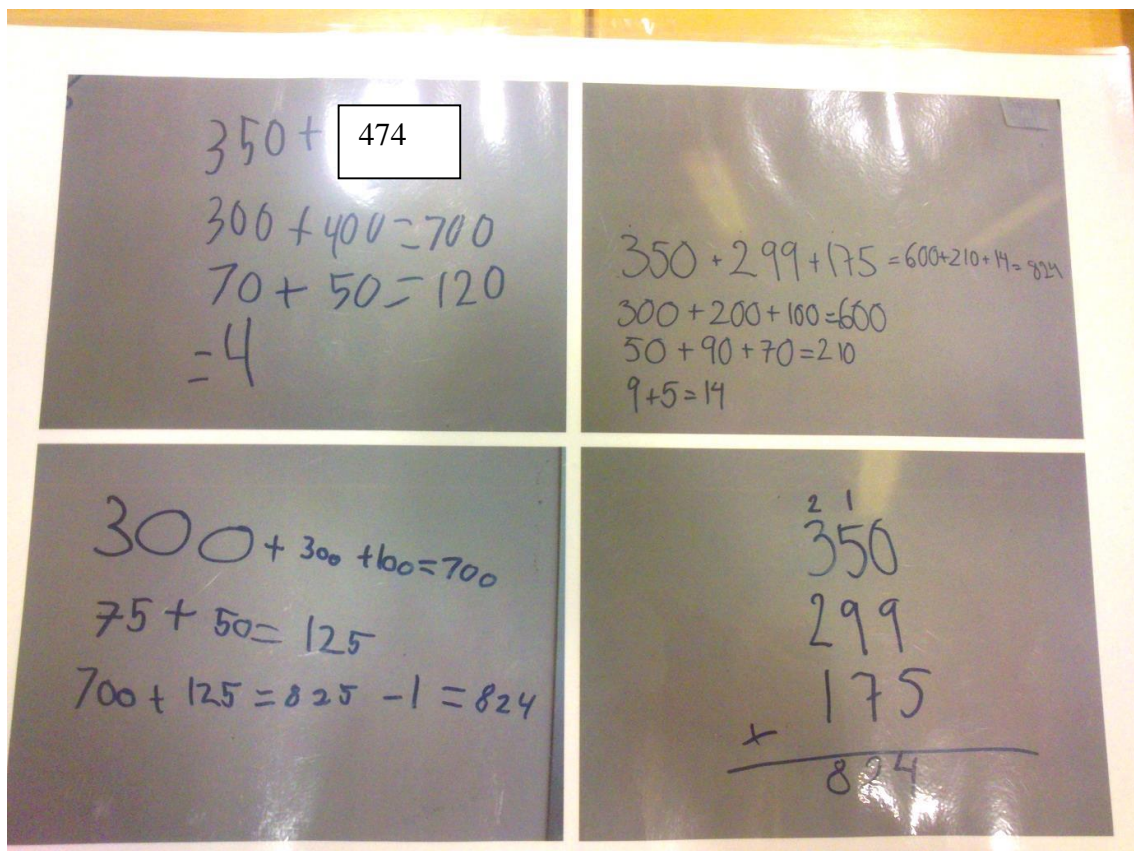 350 + 474
300 + 400 = 700
70 + 50 = 120
= 4
350 + 299 + 175 = 600+210+14 = 824
300 + 200 + 100 = 600
50 + 90 + 70 = 210
9 + 5 = 14
300 + 300 + 100 = 700
75 + 50 = 125
700 + 125 = 825 - 1 = 824
2 1
350
299
175
+
824